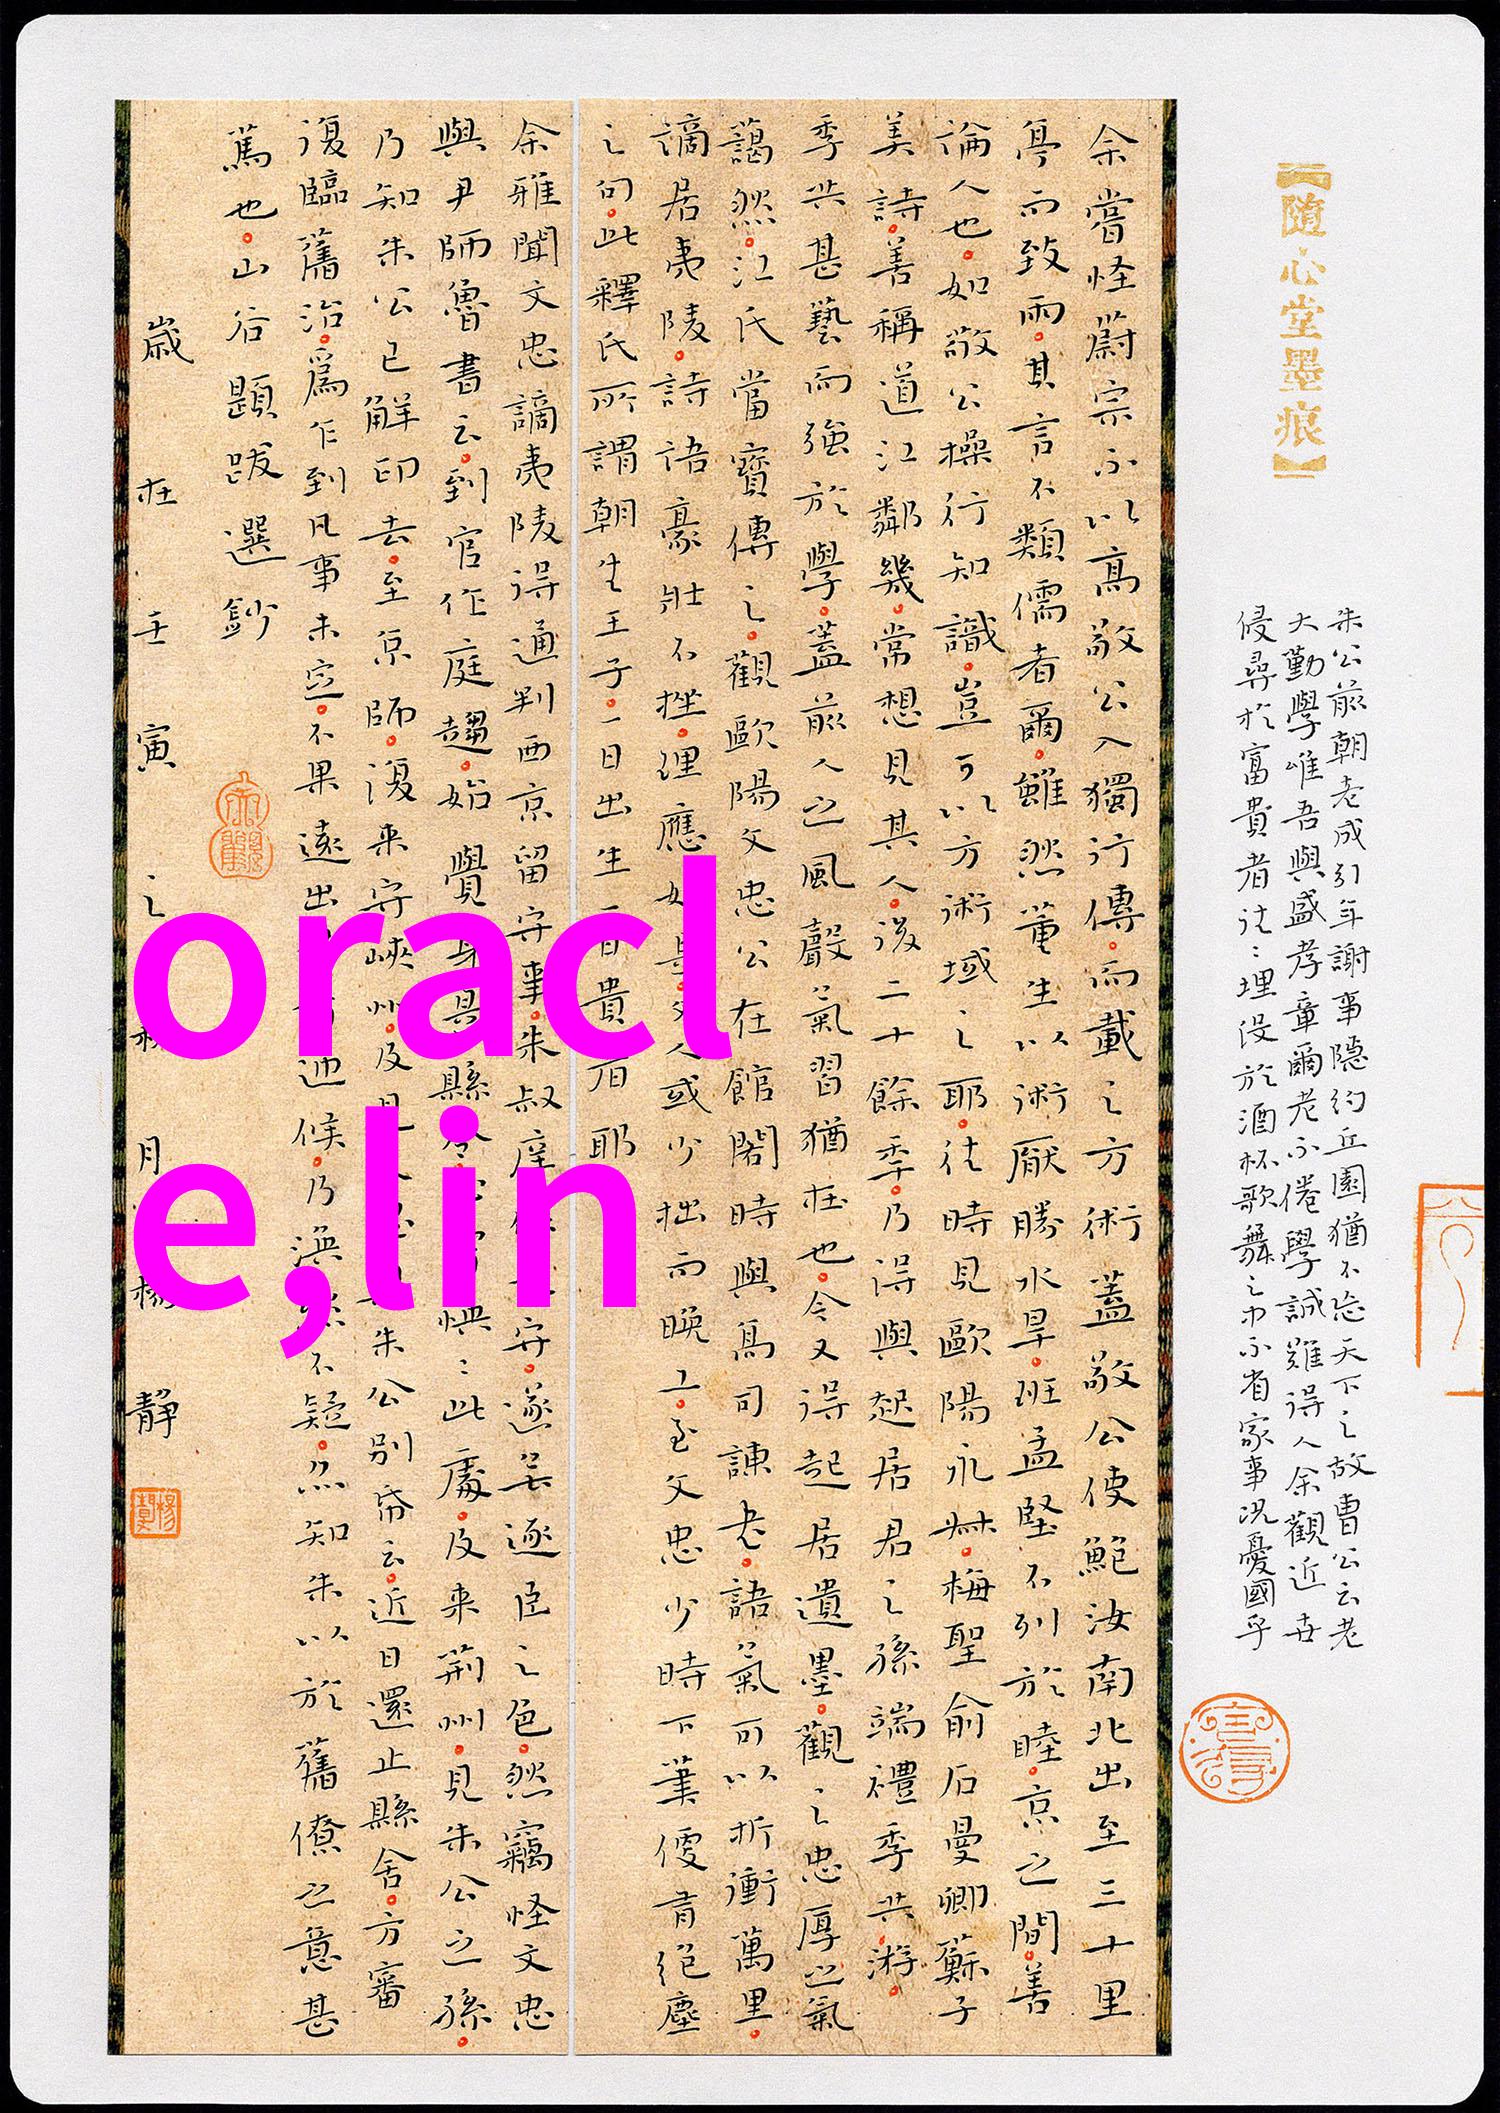 【随心堂墨痕】
朱公前朝老成引年謝事隱約丘園猶不忘天下之故曹公云老
大勤學唯吾與盛孝章爾老而不倦學誠難得人余觀近世
侵尋於富貴者往〻埋没於酒杯歌舞之中不省家事況憂國乎
余嘗怪蔚宗不以高敬公入獨行傳而載之方術蓋敬公使鮑汝南北出至三十里
亭而致雨其言不類儒者爾雖然董生以術厭勝水旱班孟堅不列於眭京之間善
論人也如敬公操行知識豈可以方術域之耶往時見歐陽永叔梅聖俞石曼卿蘇子
美詩善稱道江鄰幾常想見其人後二十餘季乃得與起居君之孫端禮季共游
季共甚藝而強於學蓋前人之風聲氣習猶在也今又得起居遺墨觀之忠厚之氣
藹然江氏當寶傳之觀歐陽文忠公在館閣時與高司諫書語氣可以折衝萬里
謫居夷陵詩語豪壯不挫理應如是文人或少拙而晚工至文忠少時下筆便有絕塵
之句此釋氏所謂朝生王子一日出生一日貴者耶
余雅聞文忠謫夷陵得通判西京留守事朱叔庠
遂無逐臣之色然竊怪文忠
與尹師魯書云到官作庭趨始覺身是縣令
此處及来荊州見朱公之孫
乃知朱公已解印去至京師復来守峽州及
朱公別帋云近日還止縣舍方審
復臨舊治爲乍到凡事未定不果遠出
迎候乃渙然不疑亦知朱以於舊僚之意甚
篤也山谷題跋選鈔
歲在壬寅之秋月楊靜
oracl
e,lin